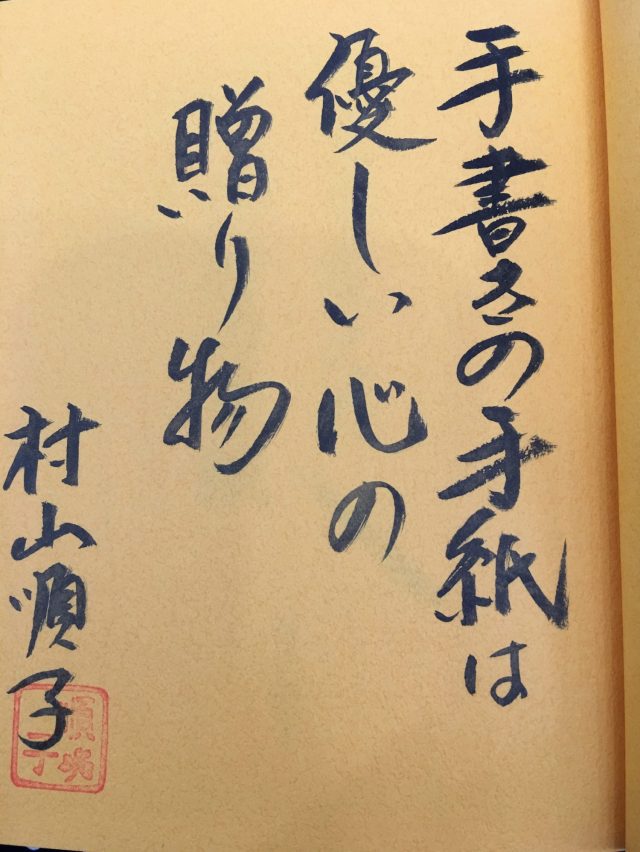 手書きの手紙は
優しい心の
贈り物
村山順子